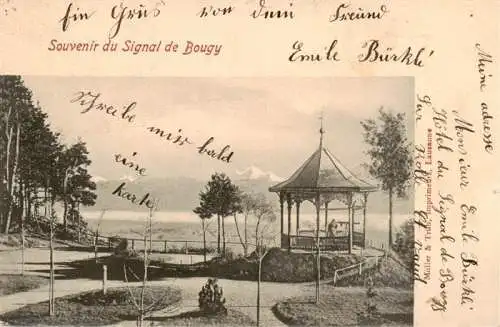 Ein Gruß von dem Freund
Emile Bürkli
Souvenir du Signal de Bougy
Schreibe mir bald
eine
Karte
Meine adresse
Monsieur Emile Bürkli
Hôtel du Signal de Bougy
Sur Rolle Ct Vaud
Müller & Trüb, Imprimeurs, Lausanne